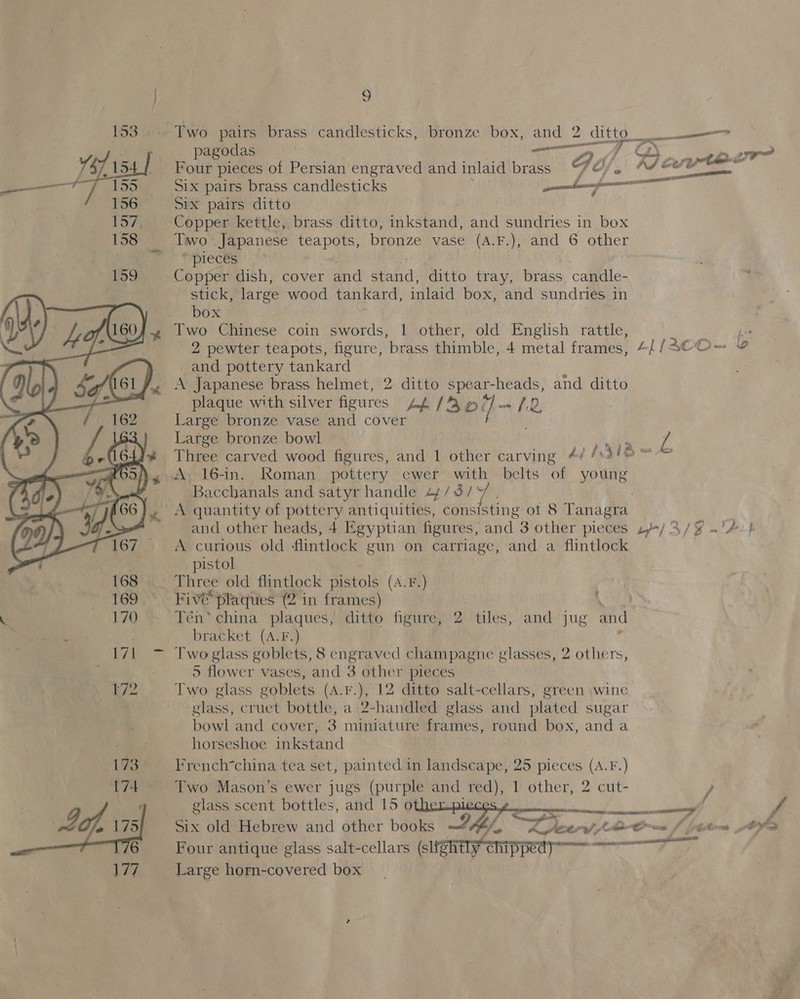 9
153 Two pairs brass candlesticks, bronze box, and 2 ditto
pagodas
154 Four pieces of Persian engraved and inlaid brass
155 Six pairs brass candlesticks
156 Six pairs ditto
157 Copper kettle, brass ditto, inkstand, and sundries in box
158 Two Japanese teapots, bronze vase (A.F.), and 6 other
pieces
159 Copper dish, cover and stand, ditto tray, brass candle-
stick, large wood tankard, inlaid box, and sundries in
box
160 Two Chinese coin swords, 1 other, old English rattle,
2 pewter teapots, figure, brass thimble, 4 metal frames,
and pottery tankard
161 A Japanese brass helmet, 2 ditto spear-heads, and ditto
plaque with silver figures
162 Large bronze vase and cover
163 Large bronze bowl
164 Three carved wood figures, and 1 other carving
165 A 16-in. Roman pottery ewer with belts of young
Bacchanals and satyr handle
166 A quantity of pottery antiquities, consisting of 8 Tanagra
and other heads, 4 Egyptian figures, and 3 other pieces
167 A curious old flintlock gun on carriage, and a flintlock
pistol
168 Three old flintlock pistols (A.F.)
169 Five plaques (2 in frames)
170 Ten china plaques, ditto figure, 2 tiles, and jug and
bracket (A.F.)
171 Two glass goblets, 8 engraved champagne glasses, 2 others,
5 flower vases, and 3 other pieces
172 Two glass goblets (A.F.), 12 ditto salt-cellars, green wine
glass, cruet bottle, a 2-handled glass and plated sugar
bowl and cover, 3 miniature frames, round box, and a
horseshoe inkstand
173 French china tea set, painted in landscape, 25 pieces (A.F.)
174 Two Mason's ewer jugs (purple and red), 1 other, 2 cut-
glass scent bottles, and 15 other pieces
175 Six old Hebrew and other books
176 Four antique glass salt-cellars (slightly chipped)
177 Large horn-covered box